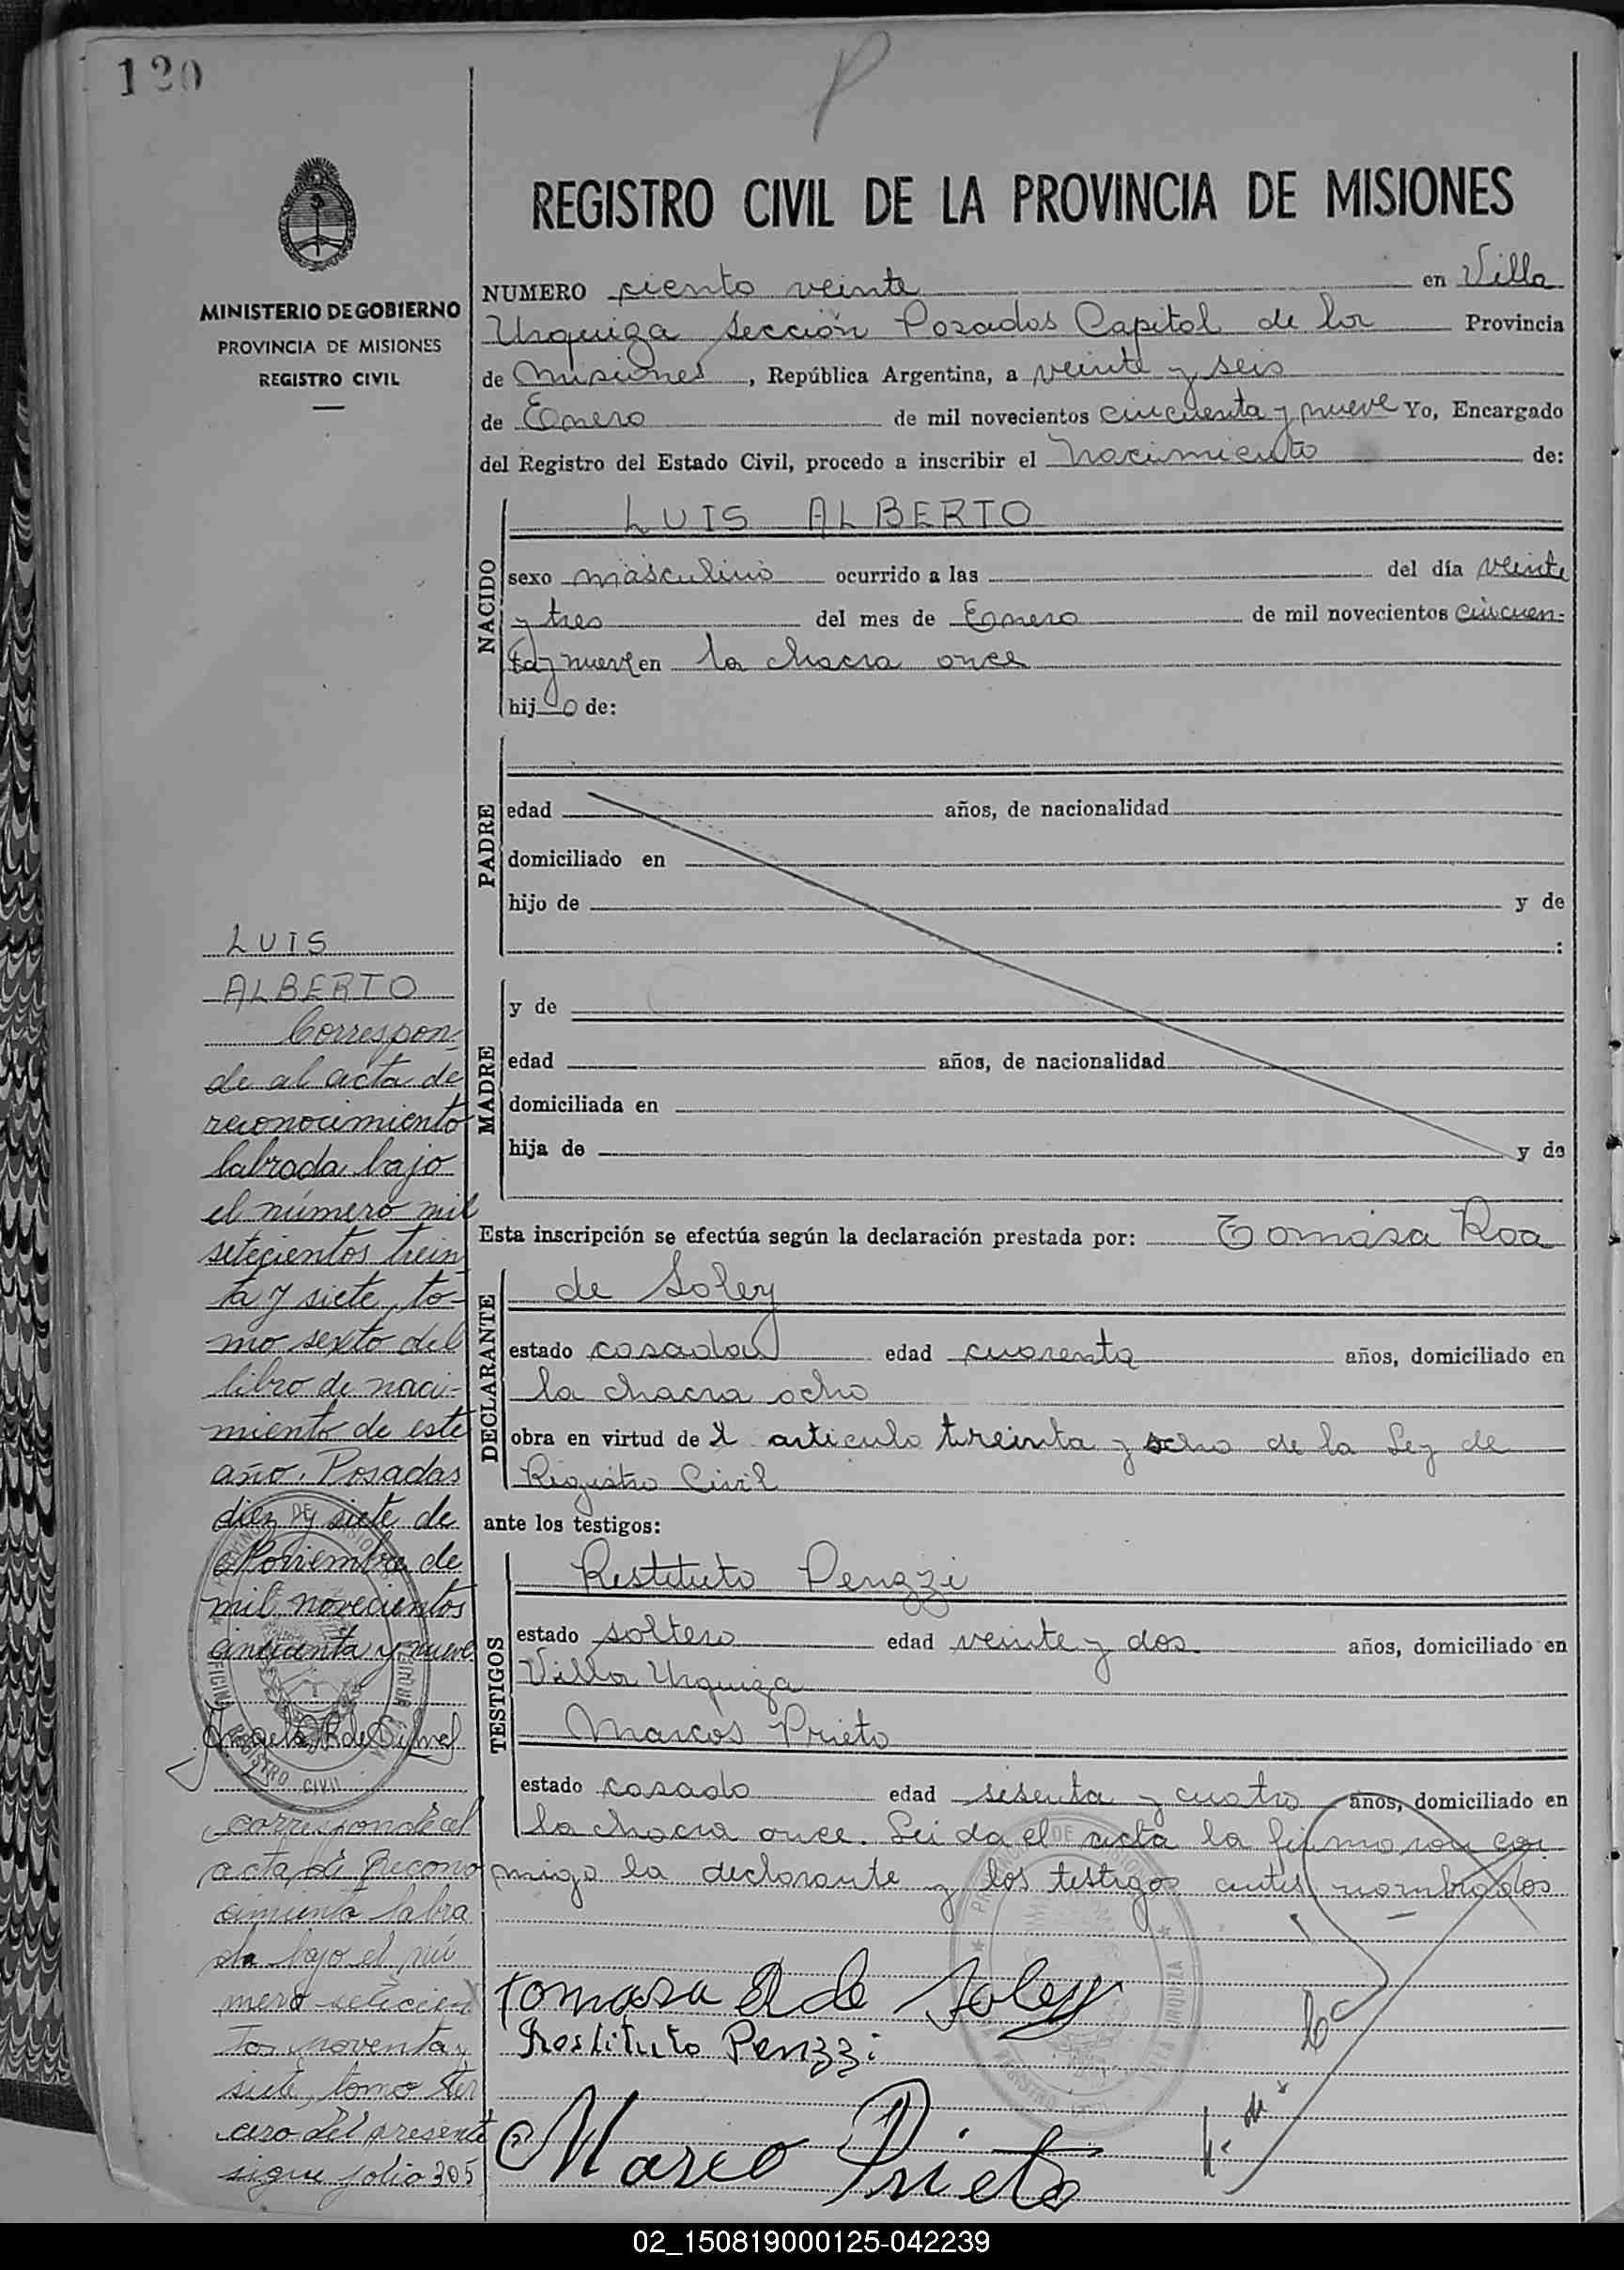 120
P
REGISTRO CIVIL DE LA PROVINCIA DE MISIONES
MINISTERIO DE GOBIERNO
PROVINCIA DE MISIONES
REGISTRO CIVIL
NUMERO ciento veinte en Villa
Urquiza sección Posadas Capital de la Provincia
de Misiones, República Argentina, a veinte y seis
de Enero de mil novecientos cincuenta y nueve Yo, Encargado
del Registro del Estado Civil, procedo a inscribir el Nacimiento de:
NACIDO
LUIS ALBERTO
sexo masculino ocurrido a las del día veinte
y tres del mes de Enero de mil novecientos cincuen-
ta y nueve en la chacra once
hijo de:
PADRE
edad años, de nacionalidad
domiciliado en
hijo de y de
:
MADRE
y de
edad años, de nacionalidad
domiciliada en
hija de y de
Esta inscripción se efectúa según la declaración prestada por: Tomasa Roa
DECLARANTE
de Soley
estado casada edad cuarenta años, domiciliado en
la chacra ocho
obra en virtud del articulo treinta y ocho de la Ley de
Registro Civil
ante los testigos:
TESTIGOS
Restituto Penzzi
estado soltero edad veinte y dos años, domiciliado en
Villa Urquiza
Marcos Prieto
estado casado edad sesenta y cuatro años, domiciliado en
la chacra once. Leida el acta la firmaron con
migo la declarante y los testigos antes nombrados
Tomasa R de Soley
Restituto Penzzi
Marco Prieto
LUIS
ALBERTO
Correspon-
de al acta de
reconocimiento
labrada bajo
el número mil
setecientos trein
ta y siete, to-
mo sexto del
libro de naci-
miento de este
año. Posadas
diez y siete de
Noviembre de
mil novecientos
cincuenta y nueve
corresponde al
acta de Recono
cimiento labra
da bajo el nú
mero setecien
tos noventa y
siete, tomo ter
cero del presente
sigue folio 305
02_150819000125-042239